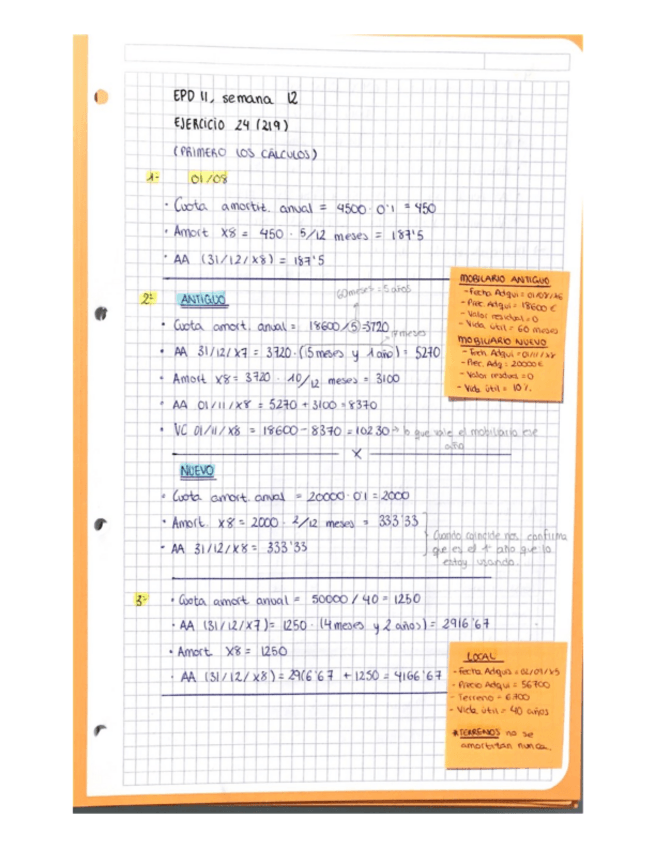 EPD 11, semana 12
EJERCICIO 24 (219)
(PRIMERO LOS CÁLCULOS)
1- 01/08
· Cuota amortiz. anual = 4500 · 0'1 = 450
· Amort X8 = 450 · 5/12 meses = 187'5
· AA (31/12/X8) = 187'5
2- ANTIGUO
60 meses = 5 años
· Cuota amort. anual = 18600/5 = 3720
· AA 31/12/X7 = 3720 · (5 meses y 1 año) = 5270
· Amort X8 = 3720 · 10/12 meses = 3100
· AA 01/11/X8 = 5270 + 3100 = 8370
· VC 01/11/X8 = 18600 - 8370 = 10230 → lo que vale el mobiliario ese
año
X
MOBILIARIO ANTIGUO
- Fecha Adqui = 01/08/X6
- Prec. Adqui = 18600 €
- Valor residual = 0
- Vida útil = 60 meses
MOBILIARIO NUEVO
- Fech. Adqui = 01/11/X8
- Prec. Adq = 20000 €
- Valor residual = 0
- Vida útil = 10%
NUEVO
· Cuota amort. anual = 20000 · 0'1 = 2000
· Amort. X8 = 2000 · 2/12 meses = 333'33
· AA 31/12/X8 = 333'33
Cuando coincide nos confirma
que es el 1er año que lo
estoy usando.
3- · Cuota amort anual = 50000 / 40 = 1250
· AA (31/12/X7) = 1250 · (4 meses y 2 años) = 2916'67
· Amort X8 = 1250
· AA (31/12/X8) = 2916'67 + 1250 = 4166'67
LOCAL
- Fecha Adqui = 02/09/X5
- Precio Adqui = 56700
- Terreno = 6700
- Vida útil = 40 años
* TERRENOS no se
amortizan nunca.